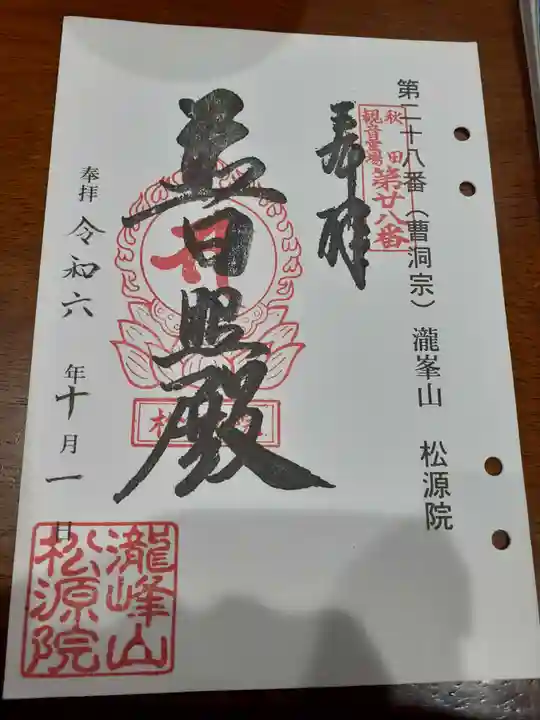 第二十八番(曹洞宗) 瀧峯山 松源院
秋田
観音霊場
第廿八番
奉拝
慧日照殿
奉拝 令和六年十月一日
瀧峰山
松源院